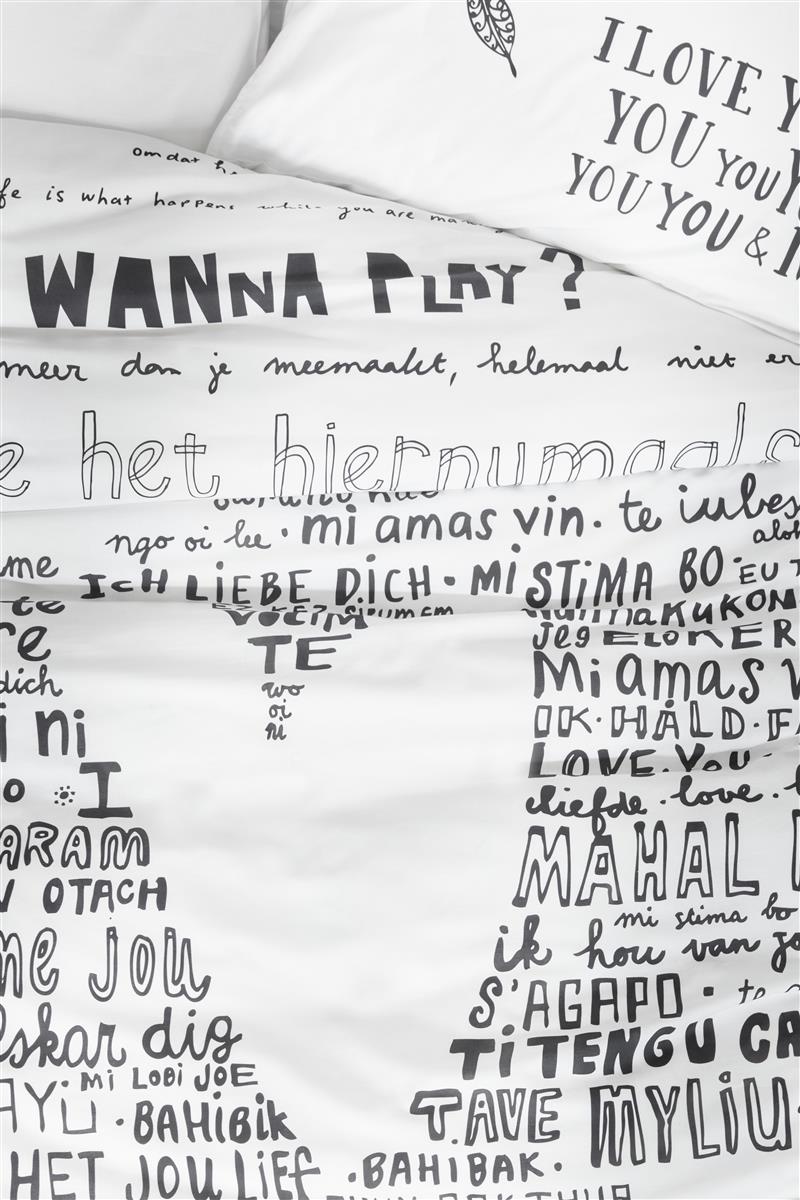 I LOVE
YOU YOU
YOU YOU & 
omdat
is what happens while you are
WANNA PLAY?
meer dan je meemaakt, helemaal niet er
het hiernumaals
ngo oi lee · mi amas vin · te iubes
me ICH LIEBE DICH · MI STIMA BO · EU
te
TE
wo
oi
ni
re
dich
ni
I
ARAM
OTACH
me jou
elskar dig
MI LOBI JOE
· BAHIBIK
HET JOU LIEF · BAHIBAK ·
KUKON
Jeg ELSKER
Mi amas
IK · HALD ·
LOVE · YOU
liefde · love ·
MAHAL
mi stima bo
ik hou van jo
S'AGAPO ·
TI TENGU CA
T.AVE MYLIU